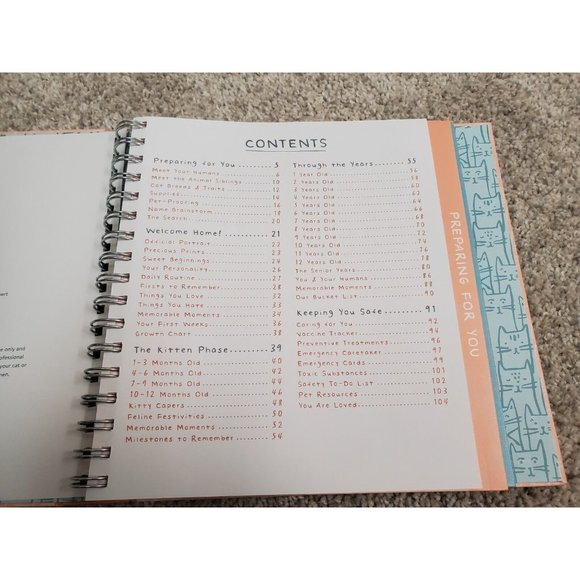 CONTENTS
Preparing for You 5
Meet Your Humans 6
Meet the Animal Siblings 10
Cat Breeds & Traits 12
Supplies 14
Pet-Proofing 16
Name Brainstorm 18
The Search 20
Welcome Home! 21
Official Portrait 22
Precious Prints 23
Sweet Beginnings 24
Your Personality 26
Daily Routine 27
Firsts to Remember 28
Things You Love 32
Things You Hate 33
Memorable Moments 34
Your First Weeks 36
Growth Chart 38
The Kitten Phase 39
1-3 Months Old 40
4-6 Months Old 42
7-9 Months Old 44
10-12 Months Old 46
Kitty Capers 48
Feline Festivities 50
Memorable Moments 52
Milestones to Remember 54
Through the Years 55
1 Year Old 56
2 Years Old 58
3 Years Old 60
4 Years Old 62
5 Years Old 64
6 Years Old 66
7 Years Old 68
8 Years Old 70
9 Years Old 72
10 Years Old 74
11 Years Old 76
12 Years Old 78
The Senior Years 80
You & Your Humans 86
Memorable Moments 88
Our Bucket List 90
Keeping You Safe 91
Caring for You 92
Vaccine Tracker 94
Preventive Treatments 96
Emergency Caretaker 97
Emergency Cards 99
Toxic Substances 101
Safety To-Do List 102
Pet Resources 103
You Are Loved 104
PREPARING FOR YOU